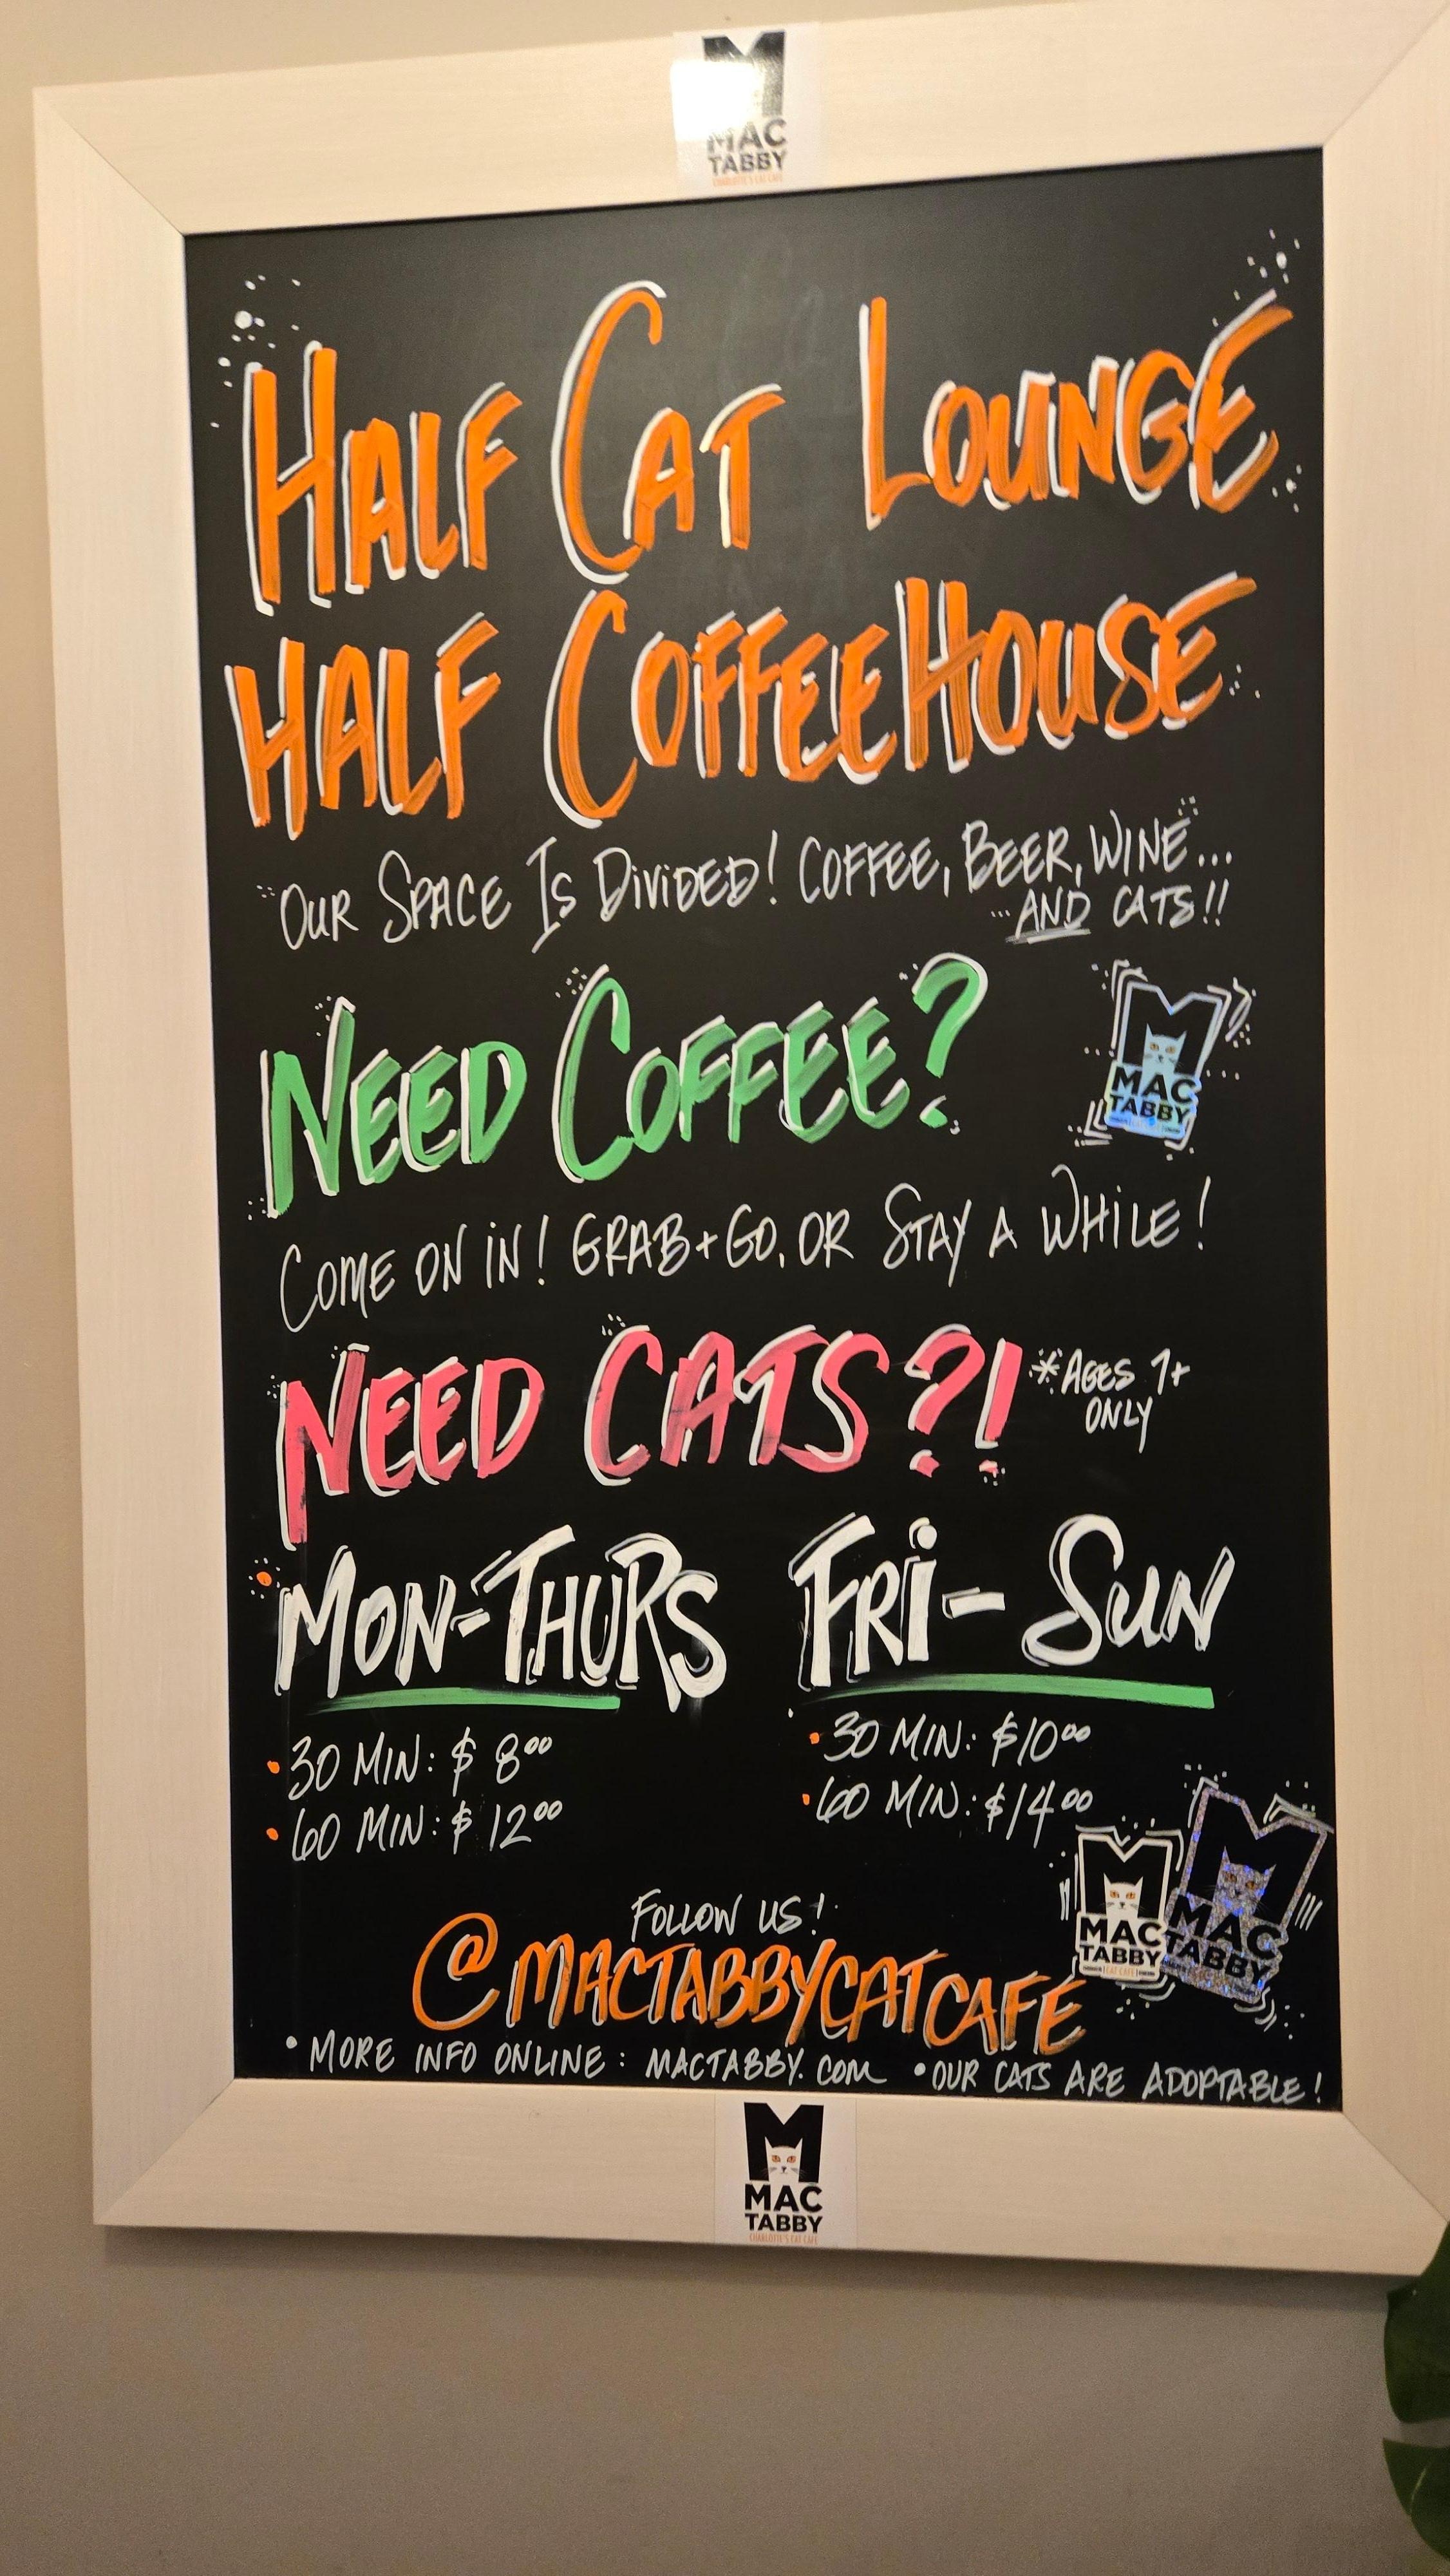 MAC
TABBY
CHARLOTTE'S CAT CAFE
HALF CAT LOUNGE
HALF COFFEEHOUSE
OUR SPACE IS DIVIDED! COFFEE, BEER, WINE...
...AND CATS!!
NEED COFFEE?
MAC
TABBY
COME ON IN! GRAB+GO, OR STAY A WHILE!
NEED CATS?!
*AGES 7+
ONLY
MON-THURS
• 30 MIN: $ 8⁰⁰
• 60 MIN: $ 12⁰⁰
FRI-SUN
• 30 MIN: $10⁰⁰
• 60 MIN: $14⁰⁰
MAC
TABBY
CAT CAFE
MAC
TABBY
FOLLOW US!
@MACTABBYCATCAFE
• MORE INFO ONLINE: MACTABBY.COM • OUR CATS ARE ADOPTABLE!
MAC
TABBY
CHARLOTTE'S CAT CAFE